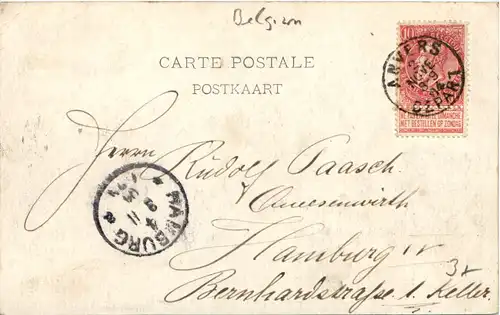 Belgien
CARTE POSTALE
POSTKAART
10
ANVERS
DÉPART
NE PAS LIVRER LE DIMANCHE
NIET BESTELLEN OP ZONDAG
Herrn Rudolf Paasch
Hamburg
HAMBURG
Bernhardstraße 1. Keller.